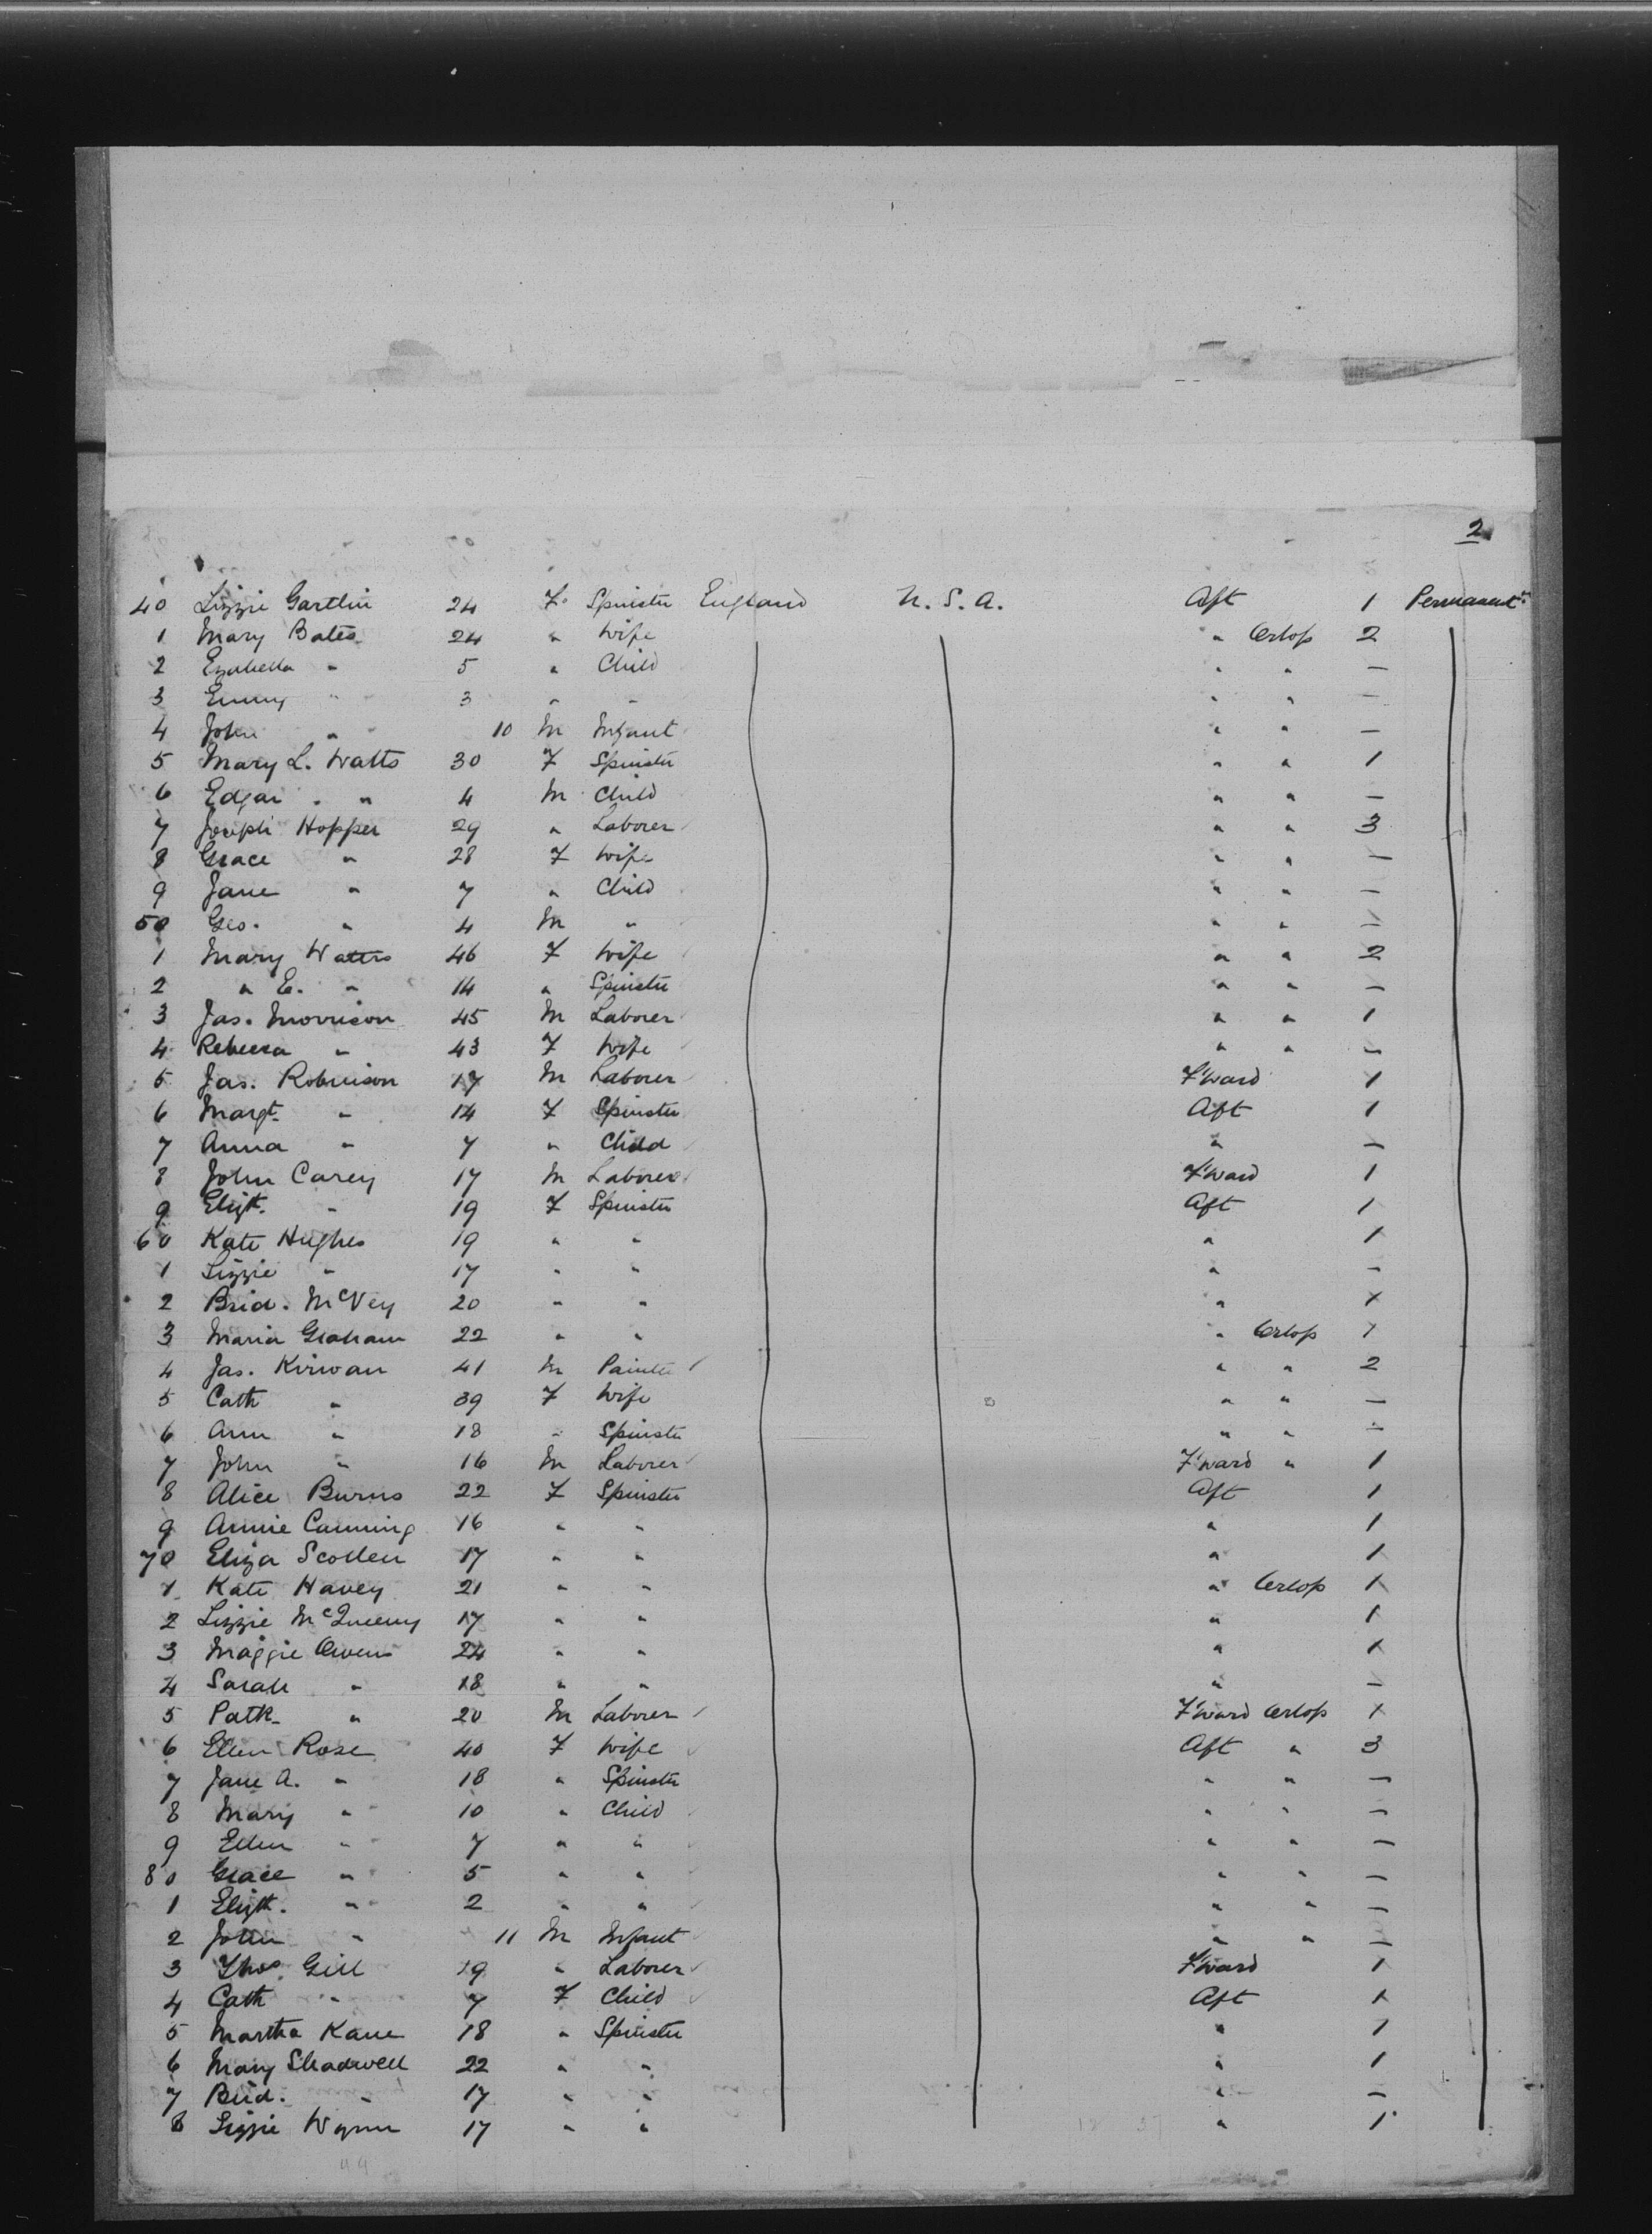 2
40 Lizzie Gartlin 24 F Spinster England U.S.A. Aft 1 Permanent
1 Mary Bates 24 " Wife " Orlop 2
2 Ezabella " 5 " Child " " —
3 Emmy " 3 " " " " —
4 John " 10 M Infant " " —
5 Mary L. Watts 30 F Spinster " " 1
6 Edgar " 4 M Child " " —
7 Joseph Hopper 29 " Laborer " " 3
8 Grace " 28 F Wife " " —
9 Jane " 7 " Child " " —
50 Geo. " 4 M " " " —
1 Mary Watters 46 F Wife " " 2
2 " E. " 14 " Spinster " " —
3 Jas. Morrison 45 M Laborer " " 1
4 Rebecca " 43 F Wife " " —
5 Jas. Robinson 17 M Laborer F'ward 1
6 Margt. " 14 F Spinster Aft 1
7 Anna " 7 " Child " —
8 John Carey 17 M Laborer F'ward 1
9 Elizth. " 19 F Spinster Aft 1
60 Kate Hughes 19 " " " 1
1 Lizzie " 17 " " " —
2 Brid. McVey 20 " " " 1
3 Maria Graham 22 " " " Orlop 1
4 Jas. Kirwan 41 M Painter " " 2
5 Cath " 39 F Wife " " —
6 Ann " 18 " Spinster " " —
7 John " 16 M Laborer F'ward " 1
8 Alice Burns 22 F Spinster Aft 1
9 Annie Canning 16 " " " 1
70 Eliza Scollen 17 " " " 1
1 Kate Havey 21 " " " Orlop 1
2 Lizzie 17 " " " 1
3 Maggie Owens 24 " " " 1
4 Sarah " 18 " " " —
5 Patk. " 20 M Laborer F'ward Orlop 1
6 Ellen Rose 40 F Wife Aft " 3
7 Jane A. " 18 " Spinster " " —
8 Mary " 10 " Child " " —
9 Ellen " 7 " " " " —
80 Grace " 5 " " " " —
1 Elizth. " 2 " " " " —
2 John " 11 M Infant " " —
3 Thos. Gill 19 " Laborer F'ward 1
4 Cath " 7 F Child Aft 1
5 Martha Kane 18 " Spinster " 1
6 Mary Shadwell 22 " " " 1
7 Brid. " 17 " " " —
8 Lizzie Wynn 17 " " " 1